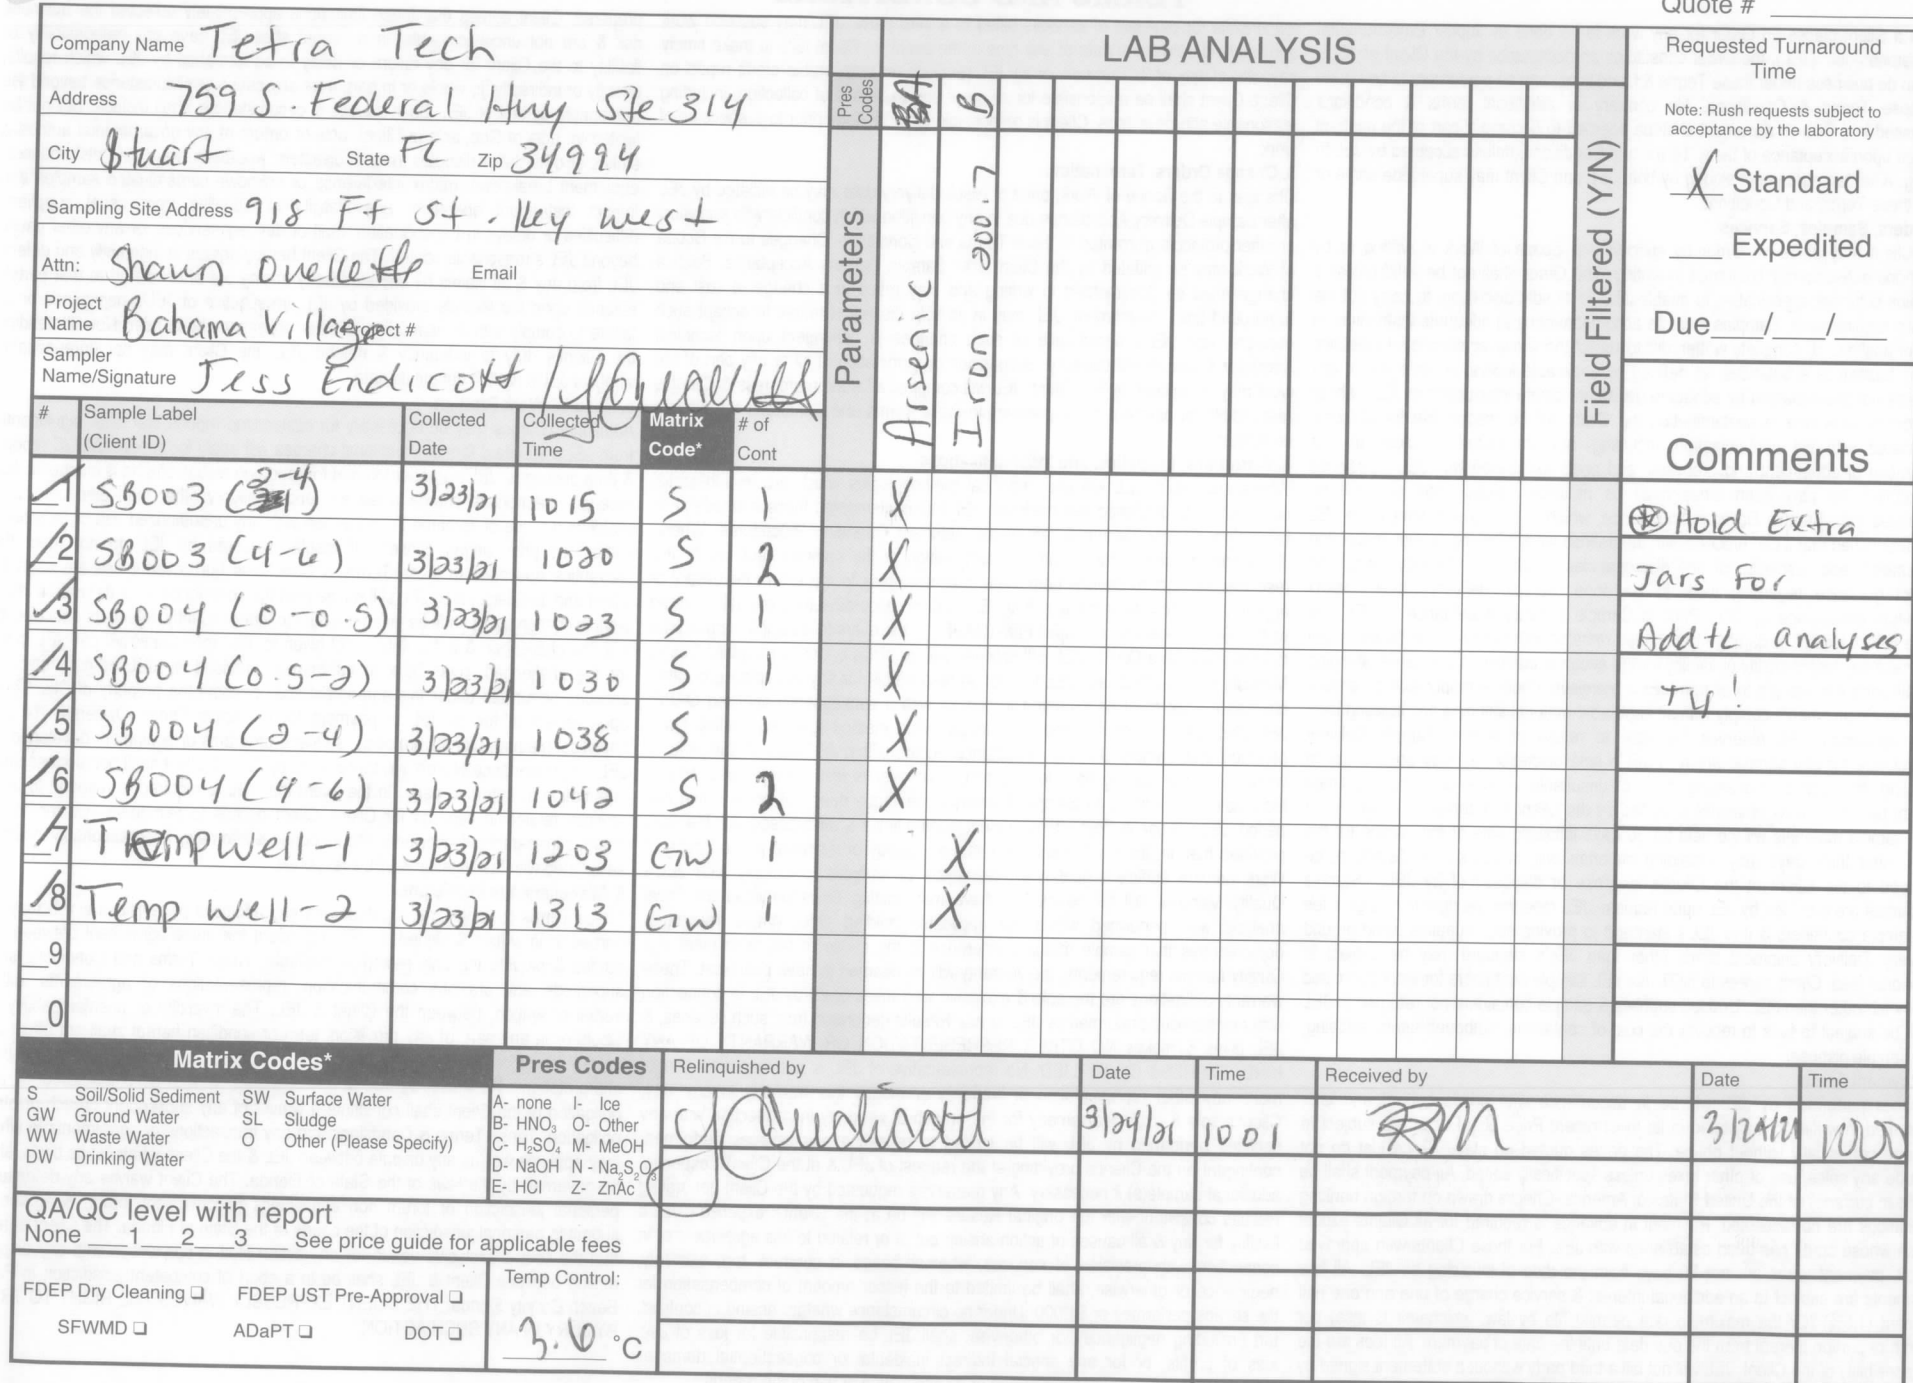 Quote #
Company Name Tetra Tech
Address 759 S. Federal Hwy Ste 314
City Stuart State FL Zip 34994
Sampling Site Address 918 Ft St. Key West
Attn: Shaun Ouellette Email
Project Name Bahama Village Project #
Sampler Name/Signature Jess Endicott /
LAB ANALYSIS
Pres Codes
B
Parameters
Arsenic
Iron 200.7
Field Filtered (Y/N)
Requested Turnaround Time
Note: Rush requests subject to acceptance by the laboratory
X Standard
___ Expedited
Due / /
Comments
# Sample Label (Client ID) Collected Date Collected Time Matrix Code* # of Cont
1 SB003 (2-4) 3/23/21 1015 S 1 X
2 SB003 (4-6) 3/23/21 1020 S 2 X
3 SB004 (0-0.5) 3/23/21 1023 S 1 X
4 SB004 (0.5-2) 3/23/21 1030 S 1 X
5 SB004 (2-4) 3/23/21 1038 S 1 X
6 SB004 (4-6) 3/23/21 1042 S 2 X
7 Tempwell-1 3/23/21 1203 GW 1 X
8 Temp well-2 3/23/21 1313 GW 1 X
9
0
Hold Extra
Jars for
Addtl analyses
Ty!
Matrix Codes*
S Soil/Solid Sediment SW Surface Water
GW Ground Water SL Sludge
WW Waste Water O Other (Please Specify)
DW Drinking Water
Pres Codes
A- none I- Ice
B- HNO3 O- Other
C- H2SO4 M- MeOH
D- NaOH N - Na2S2O3
E- HCl Z- ZnAc
Relinquished by Date Time Received by Date Time
3/24/21 1001 3/24/21 1000
QA/QC level with report
None ___1___2___3___ See price guide for applicable fees
FDEP Dry Cleaning ❑ FDEP UST Pre-Approval ❑
SFWMD ❑ ADaPT ❑ DOT ❑
Temp Control:
3.6 °C